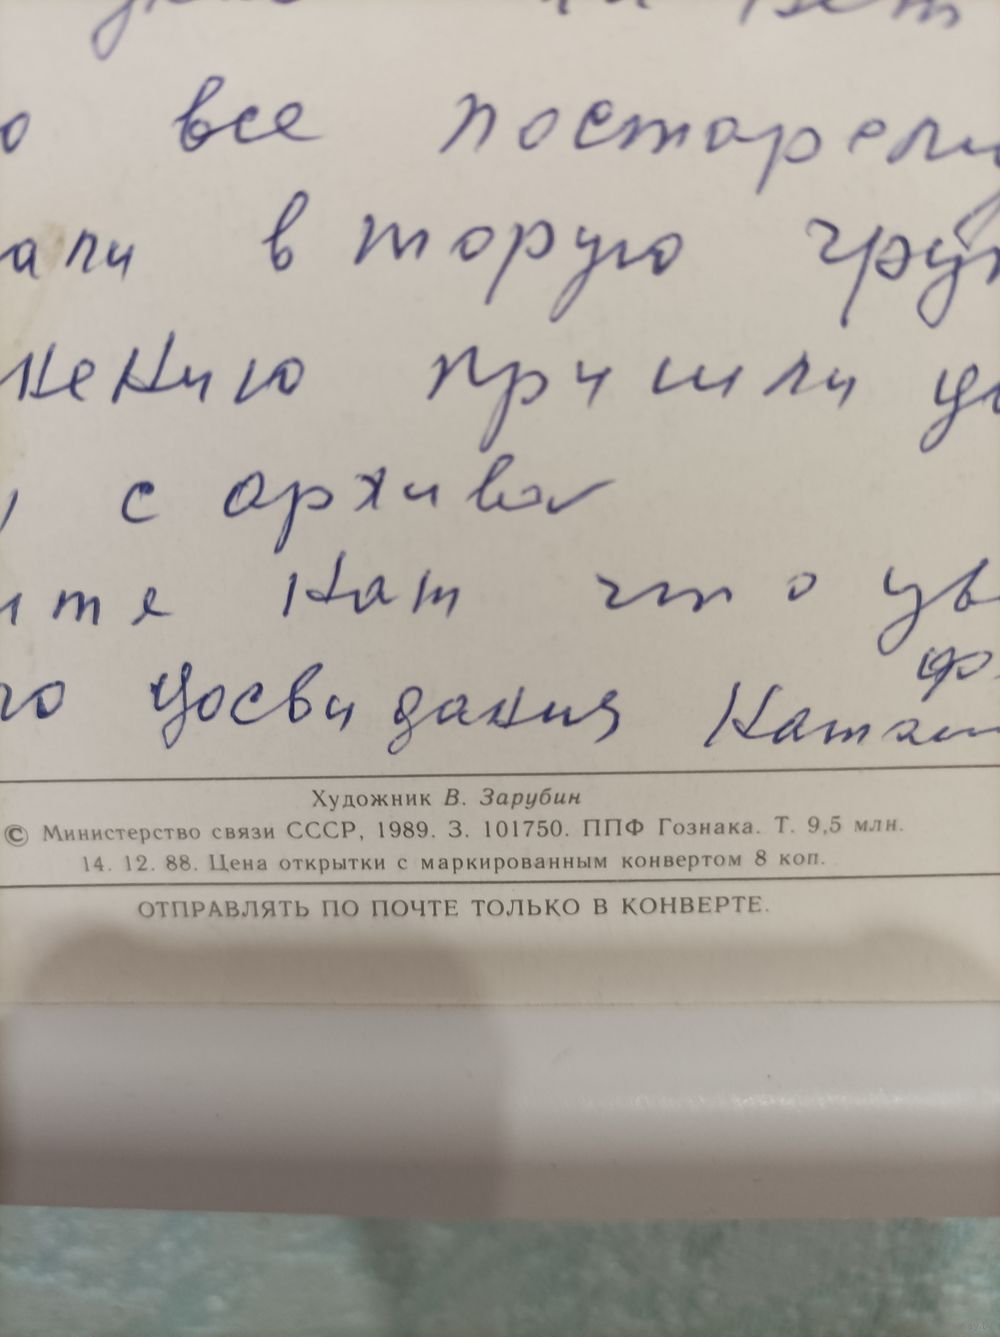 о все постарели
али вторую гру
жению пришли
с архива
ите нат что ув
го досвидания Ната
Художник В. Зарубин
© Министерство связи СССР, 1989. З. 101750. ППФ Гознака. Т. 9,5 млн.
14. 12. 88. Цена открытки с маркированным конвертом 8 коп.
ОТПРАВЛЯТЬ ПО ПОЧТЕ ТОЛЬКО В КОНВЕРТЕ.